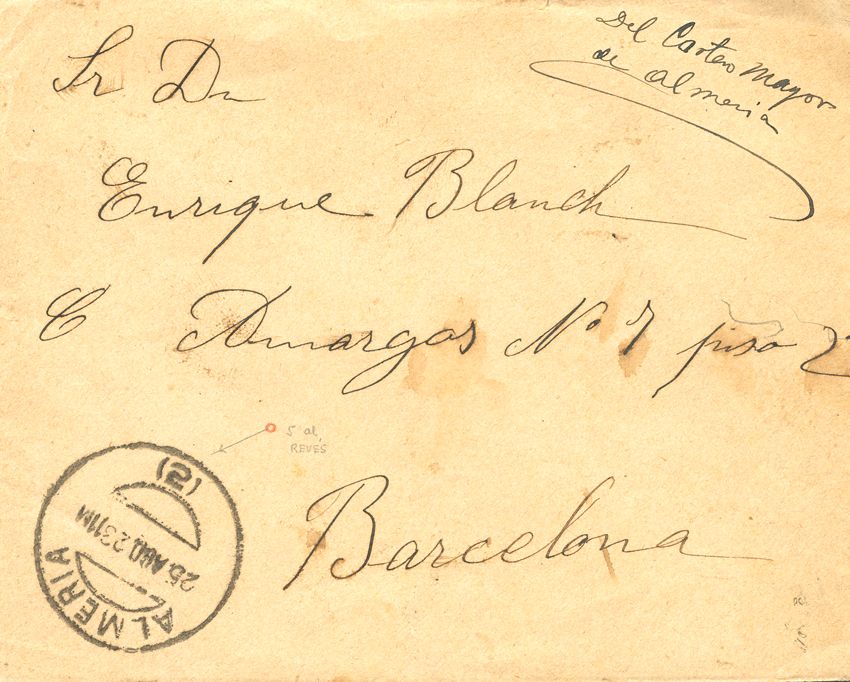 Del Cartero Mayor
de Almeria
Sr Dn
Enrique Blanch
C Amargos Nº 7 piso 2
5 al
REVÉS
Barcelona
(2)
25 AGO 23 11M
ALMERIA